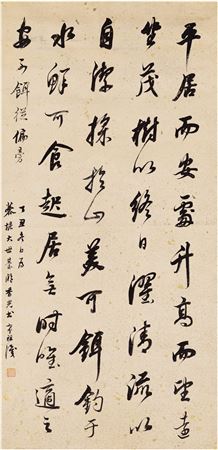 平居而安處升高而望遠
坐茂樹以終日濯清流以
自潔採於山美可餌釣于
水鮮可食起居無時唯適之
安
餌從偏旁
丁丑冬日為
大世兄